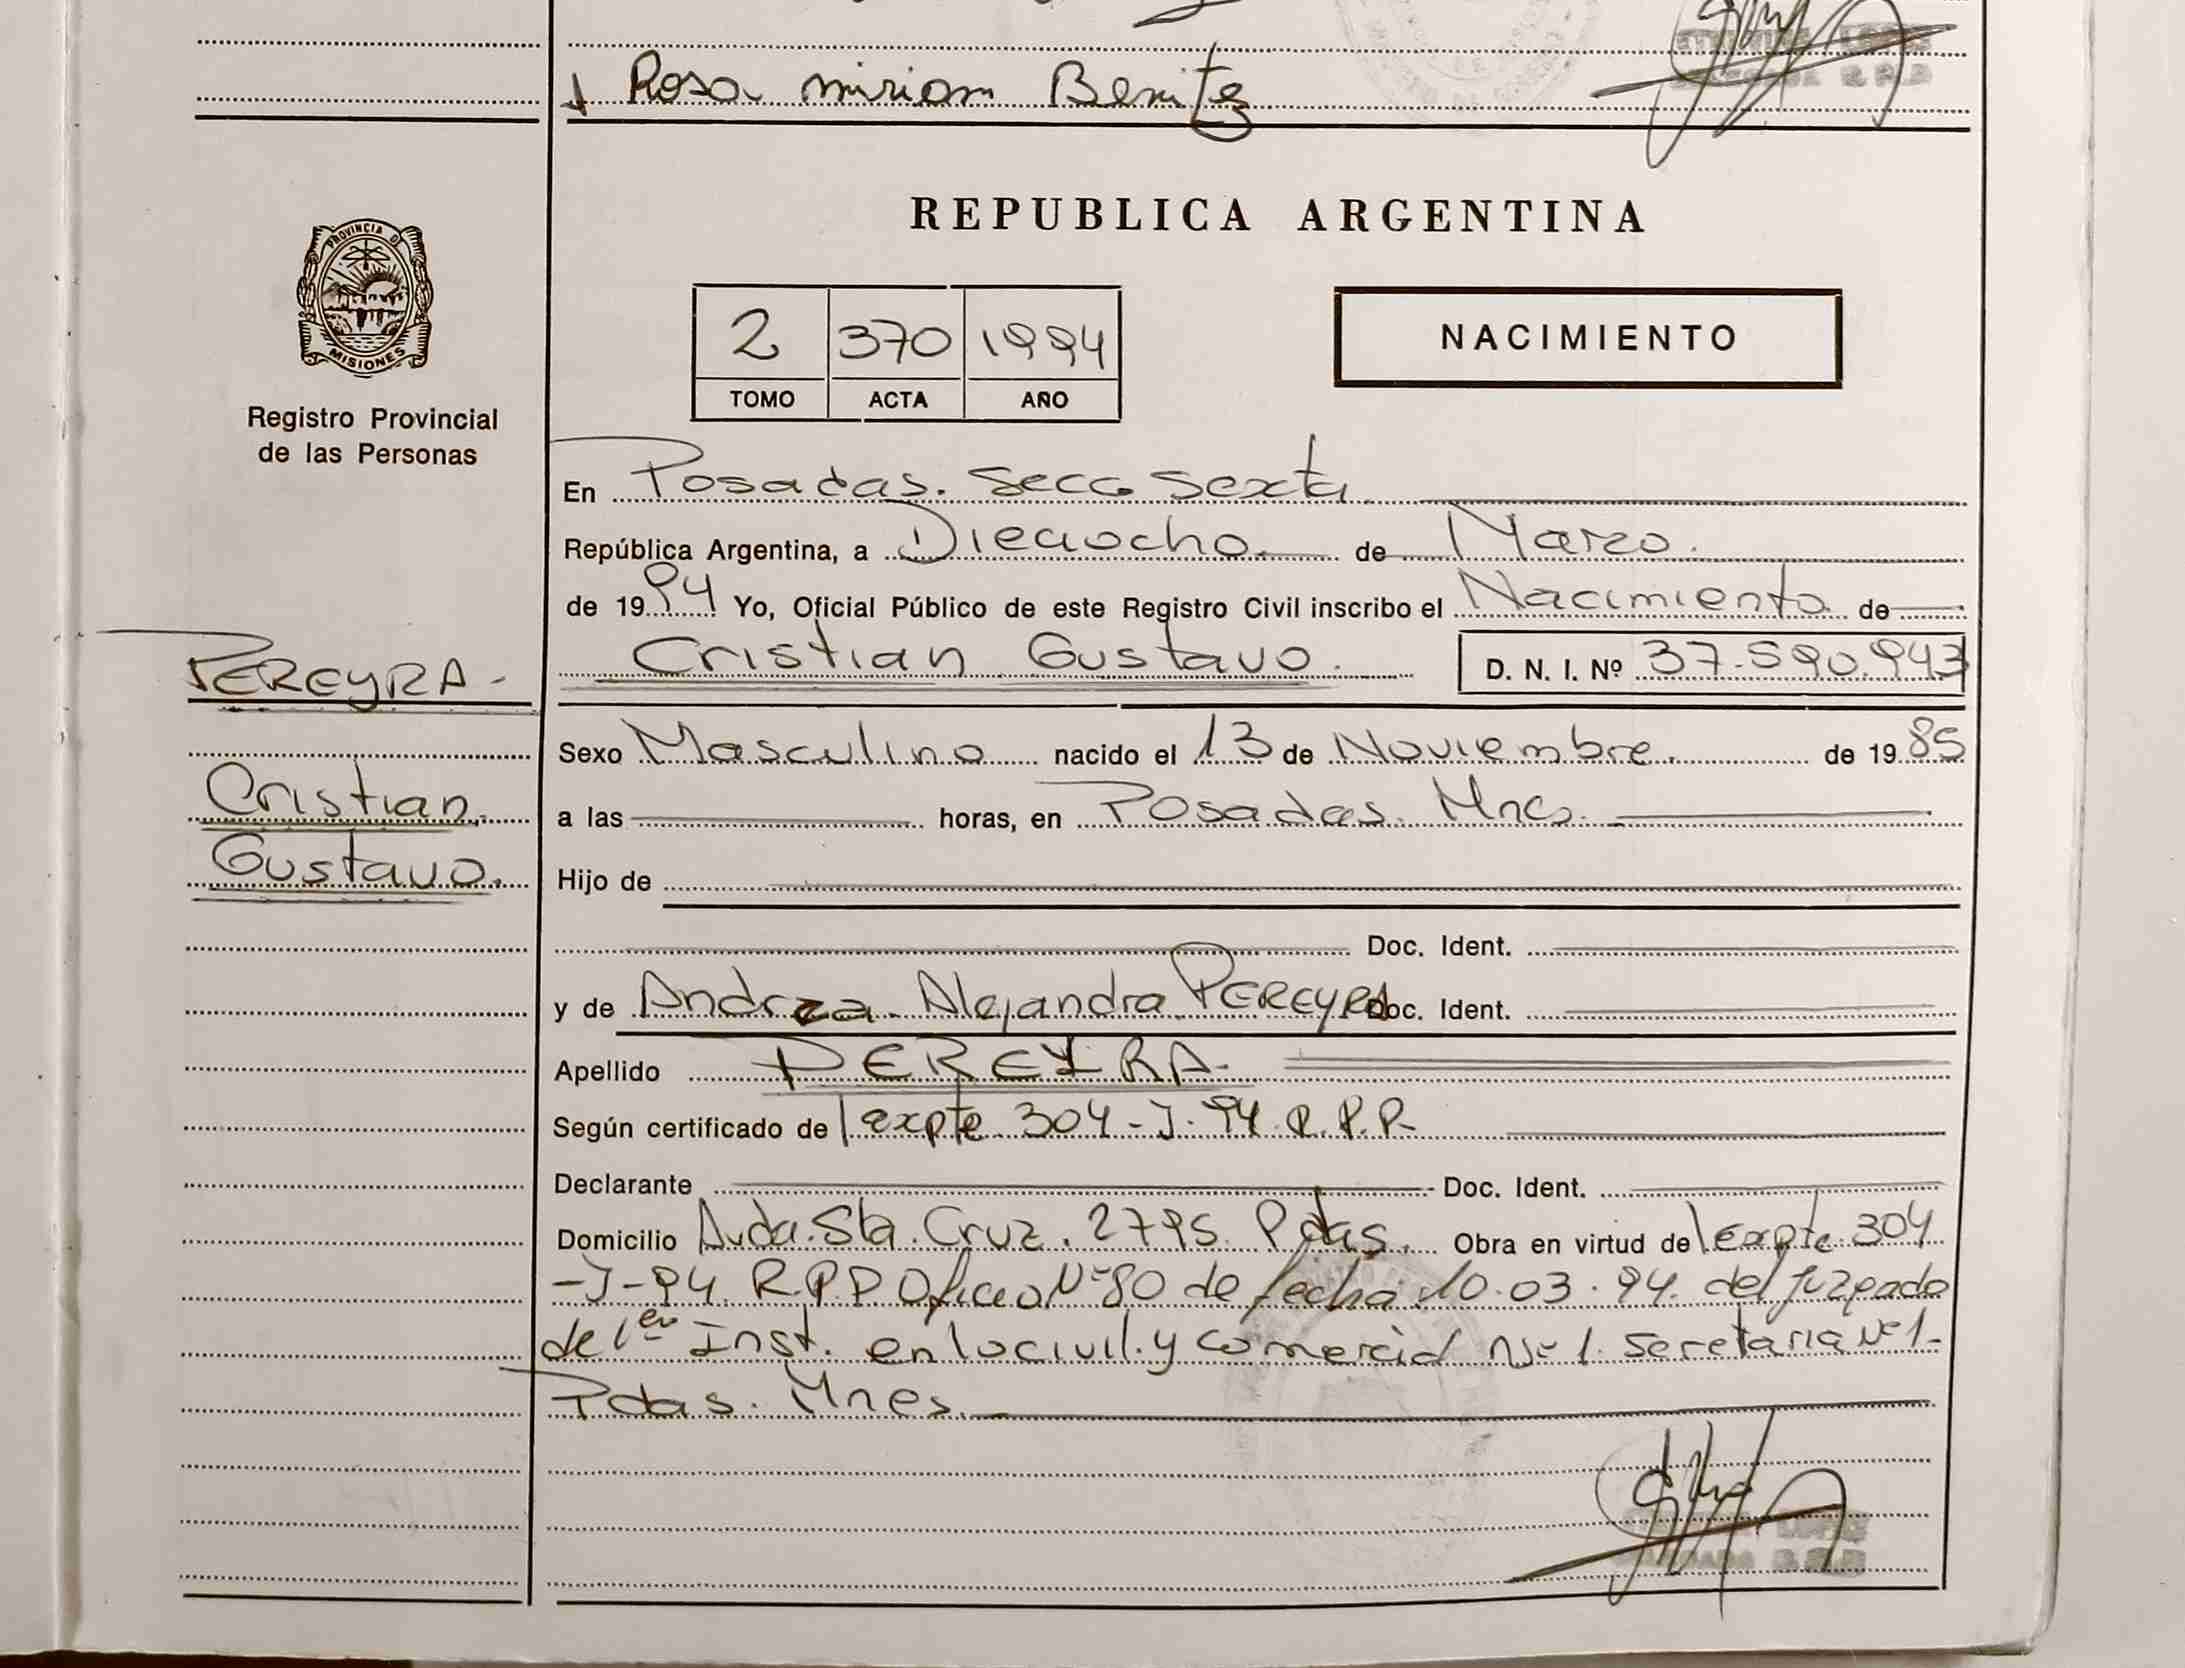 Rosa miriam Benitez
REPUBLICA ARGENTINA
PROVINCIA DE
MISIONES
Registro Provincial
de las Personas
2 370 1994
TOMO ACTA AÑO
NACIMIENTO
En Posadas. Secc Sexta
República Argentina, a Dieciocho de Marzo.
de 1994 Yo, Oficial Público de este Registro Civil inscribo el Nacimiento de
Cristian Gustavo. D. N. I. Nº 37.590.943
PEREYRA-
Cristian
Gustavo.
Sexo Masculino nacido el 13 de Noviembre. de 1985
a las horas, en Posadas. Mnes.
Hijo de
Doc. Ident.
y de Andrea Alejandra PEREYRA Doc. Ident.
Apellido PEREYRA-
Según certificado de expte 304-J-94 R.P.P.
Declarante Doc. Ident.
Domicilio Avda. Sta. Cruz. 2795. Pdas. Obra en virtud de expte 304
-J-94 R.P.P. Oficio Nº 80 de fecha 10.03.94. del juzgado
de 1er Inst. en lo civil y comercial Nº 1. Secretaria Nº 1-
Pdas. Mnes.